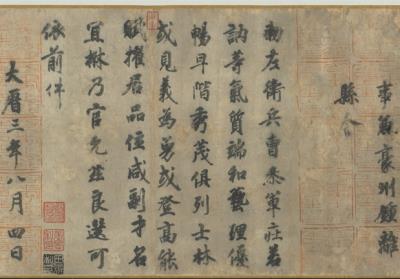 事兼豪州鍾離
縣令
敕左衛兵曹叅軍莊若
訥等氣質端和藝理優
暢早階秀茂俱列士林
或見義為勇或登高能
賦擢居品位咸副才名
宜楙乃官允茲良選可
依前件
大曆三年八月四日